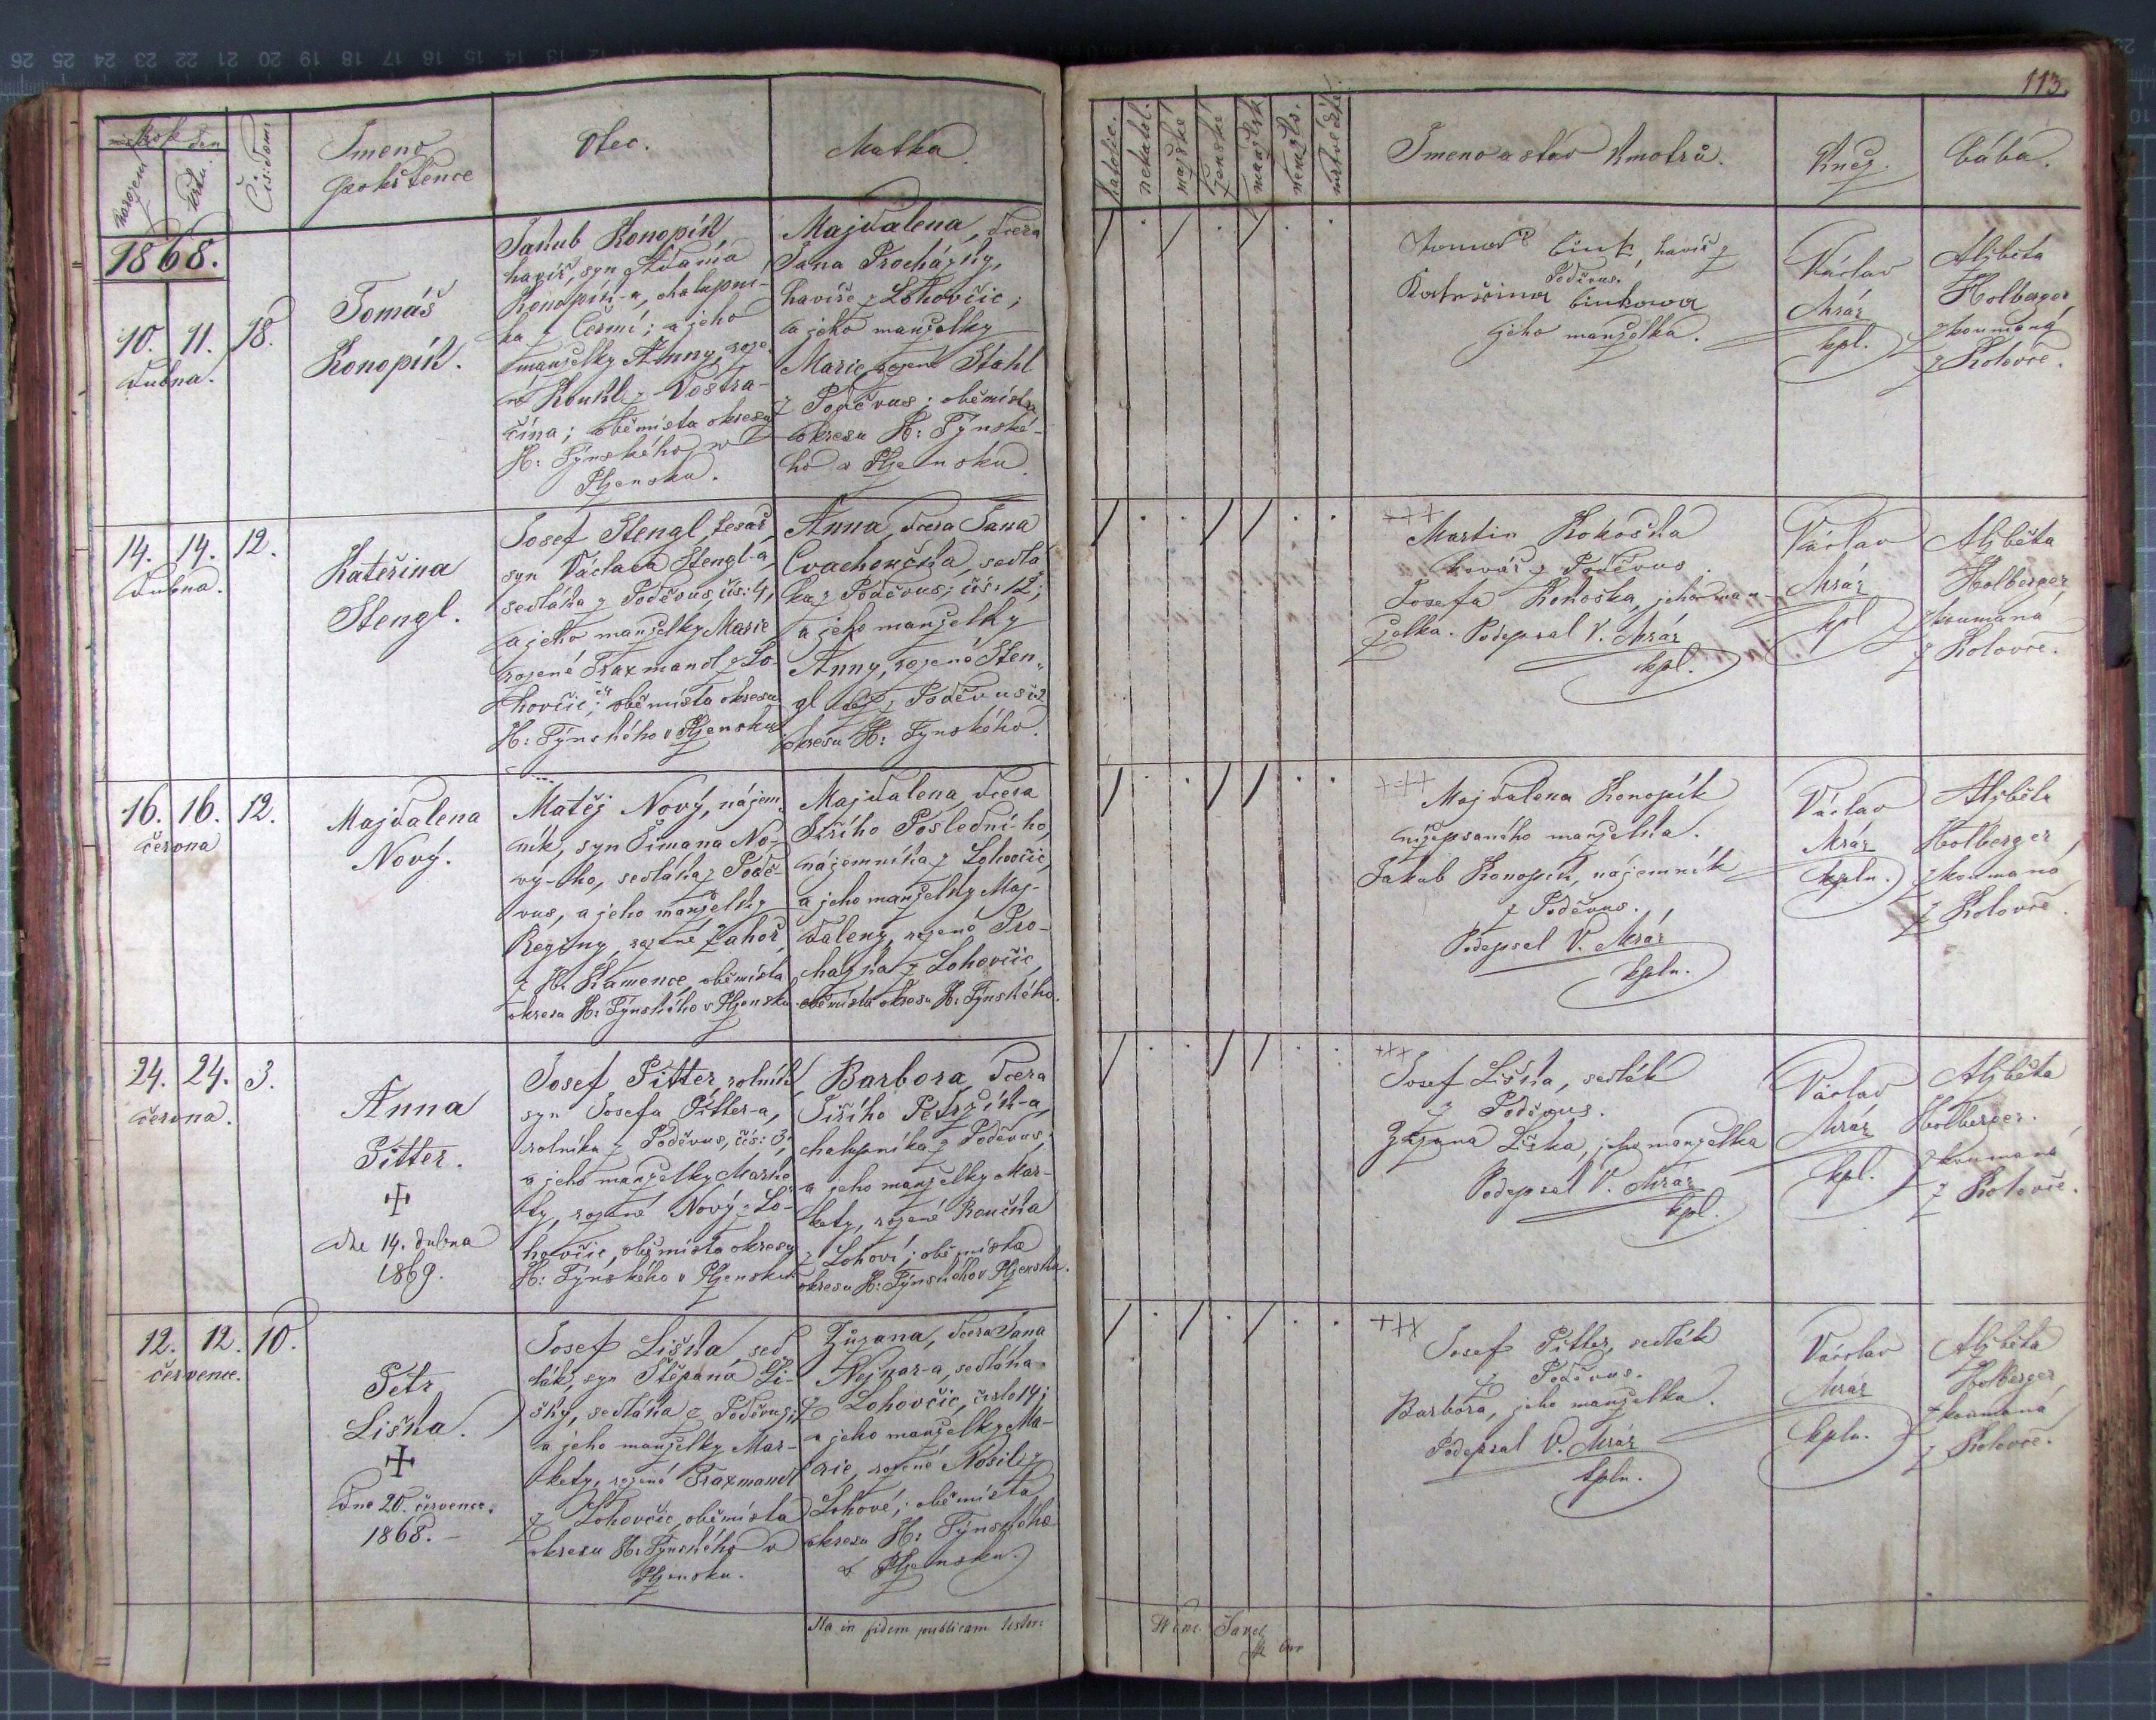 113.
Rok
měsíc den
narození
křtu
Čís: domu
Imeno
pokřtence
Otec.
Matka.
katolic.
nekatol.
mužské
ženské
manželsk
nemanžels.
mrtvě
Imeno a stav Kmotrů.
Kněz.
bába.
1868.
10. 11. 18.
dubna.
Tomáš
Konopík.
Jakub Konopík
havíř, syn Adama
Konopík-a, chalupní-
ka z Čermé; a jeho
manželky Anny, roze-
né Koukl z Vostra-
čína; obě místa okresu
H: Týnského v
Plzensku.
Majdalena, dcera
Jana Procházky,
havíře z Lohovčic;
a jeho manželky
Marie, rozené Stahl
z Poděvus; obě místa
okresu H: Týnské-
ho v Plzensku.
Tomáš Cink, havíř z
Poděvus.
Kateřina Cinkowa
jeho manželka.
Václav
Mráz
kpl.
Alžběta
Holberger,
zkoumaná
z Kolovče.
14. 14. 12.
dubna.
Kateřina
Stengl.
Josef Stengl, tesař,
syn Václava Stengl-a,
sedláka z Poděvus, čís: 4,
a jeho manželky Marie
rozené Traxmandl z Lo-
hovčic; obě místa okresu
H: Týnského v Plzensku
Anna, dcera Jana
Cvachoučka, sedlá-
ka z Poděvus; čís: 12;
a jeho manželky
Anny, rozené Sten-
gl z Poděvus
okresu H: Týnského.
+++
Martin Kokoška
kovář z Poděvus.
Josefa Kokoška, jeho man-
želka. Podepsal V. Mráz
kpl.
Václav
Mráz
kpl
Alžběta
Holberger,
zkoumaná
z Kolovče.
16. 16. 12.
června
Majdalena
Nový.
Matěj Nový, nájem-
ník, syn Šimana No-
vý-ho, sedláka z Podě-
vus, a jeho manželky
Reginy, rozené Zahoř
z H. Kamence, obě místa
okresu H: Týnského v Plzensku.
Majdalena, dcera
Jiřího Poslední-ho,
nájemníka z Lohovčic,
a jeho manželky Maj-
daleny, rozené Pro-
házka z Lohovčic,
obě místa okresu H: Týnského.
+++
Majdalena Konopík
nížepsaného manželka.
Jakub Konopík, nájemník
z Poděvus.
Podepsal V. Mráz
kpln.
Václav
Mráz
kpln.
Alžběta
Holberger,
zkoumaná
z Kolovče.
24. 24. 3.
června.
Anna
Pitter.
dne 14. dubna
1869.
Josef Pitter, rolník
syn Josefa Pitter-a,
rolníka z Poděvus, čís: 3;
a jeho manželky Marke-
ty, rozené Nový z Lo-
hovčic, obě místa okresu
H: Týnského v Plzensku.
Barbora, dcera
Jiřího Petrzík-a,
chalupníka z Poděvus;
a jeho manželky Mar-
kety, rozené Koučka
z Lohoví; obě místa
okresu H: Týnského v Plzensku.
+++
Josef Liška, sedlák
z Poděvus.
Zuzana Liška, jeho manželka
Podepsal V. Mráz
kpl.
Václav
Mráz
kpl.
Alžběta
Holberger,
zkoumaná
z Kolovče.
12. 12. 10.
července.
Petr
Liška.
dne 20. července.
1868.
Josef Liška, sed-
lák, syn Štěpána Li-
šky, sedláka z Poděvus;
a jeho manželky Mar-
kety, rozené Traxmandl
z Lohovčic, obě místa
okresu H: Týnského v
Plzensku.
Zuzana, dcera Jana
Nejzar-a, sedláka
z Lohovčic, číslo 14;
a jeho manželky Ma-
rie, rozené Nosil z
Lohové; obě místa
okresu H: Týnského
v Plzensku.
+++
Josef Pitter, sedlák
z Poděvus.
Barbora, jeho manželka.
Podepsal V. Mráz
kpln.
Václav
Mráz
kpln.
Alžběta
Holberger,
zkoumaná
z Kolovče.
Ita in fidem publicam testor: